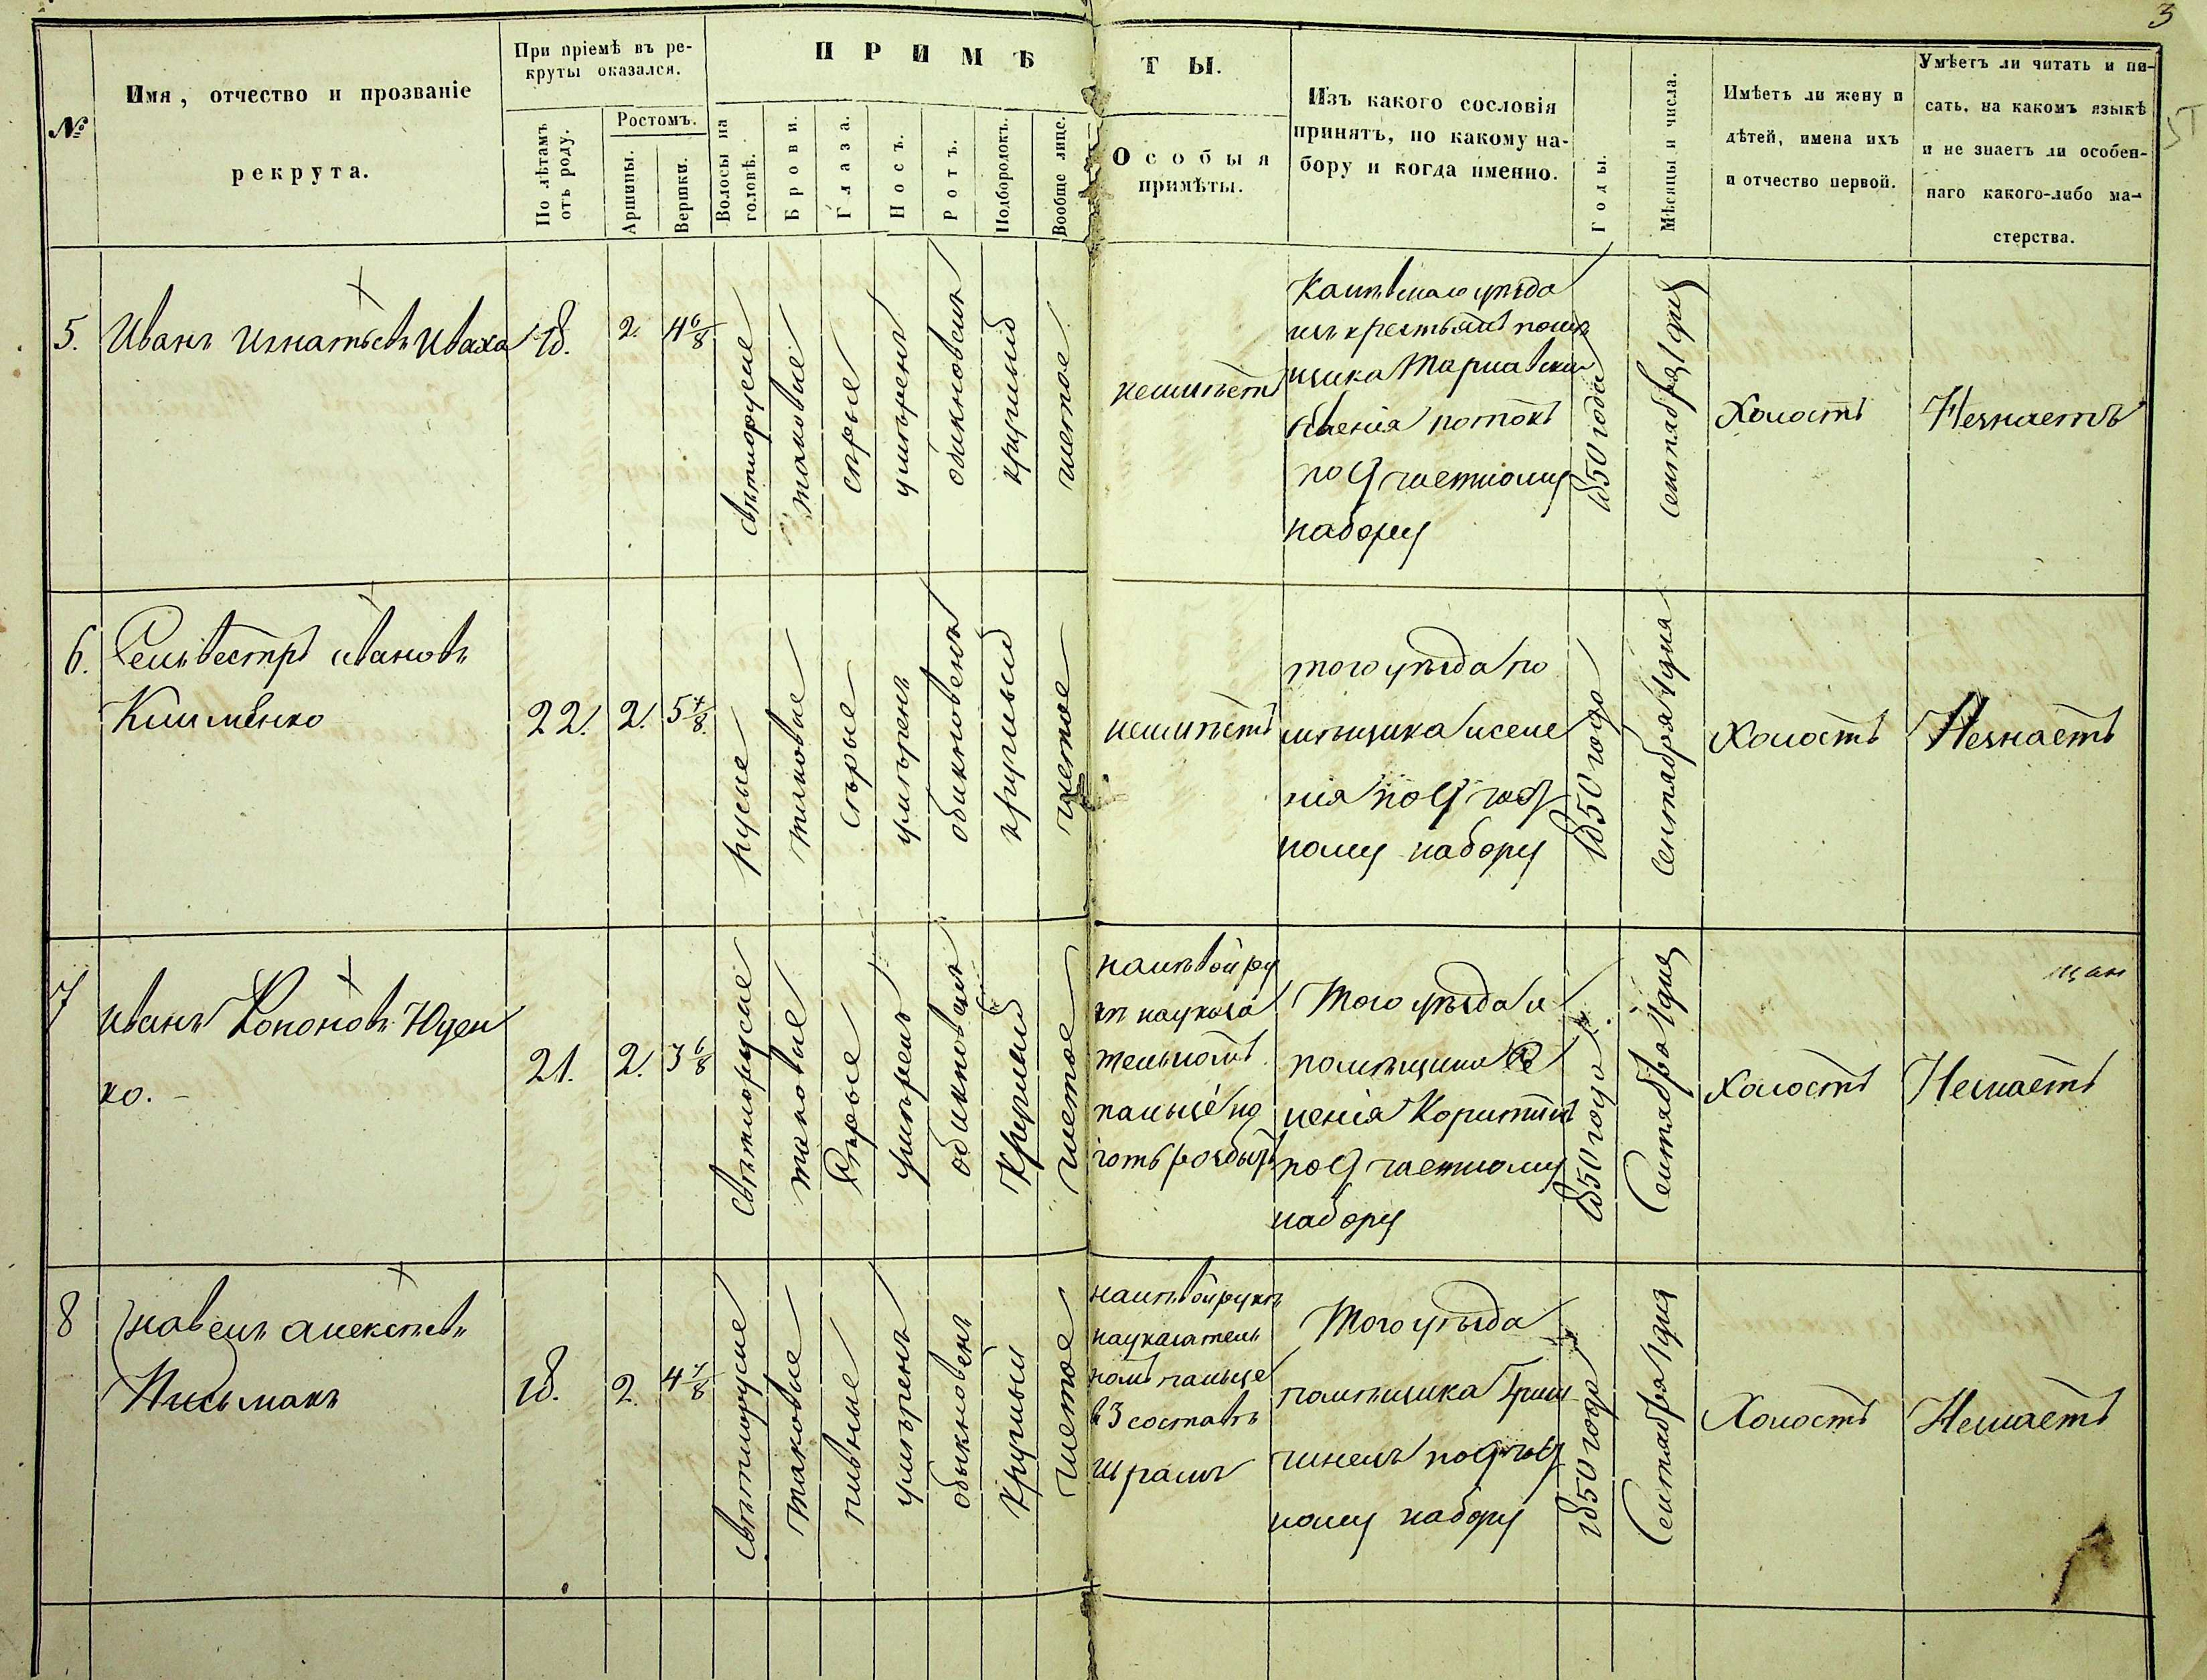 3
5Т
№
Имя, отчество и прозваніе
рекрута.
При пріемѣ въ ре-
круты оказался.
По лѣтамъ
отъ роду.
Ростомъ.
Аршины.
Вершки.
ПРИМѢ
ТЫ.
Волосы на
головѣ.
Брови.
Глаза.
Носъ.
Ротъ.
Подбородокъ.
Вообще лице.
Особыя
примѣты.
Изъ какого сословія
принятъ, по какому на-
бору и когда именно.
Годы.
Мѣсяцы и числа.
Имѣетъ ли жену и
дѣтей, имена ихъ
и отчество первой.
Умѣетъ ли читать и пи-
сать, на какомъ языкѣ
и не знаетъ ли особен-
наго какого-либо ма-
стерства.
5.
Иванъ Игнатьевъ Иваха
18.
2.
4 6/8
свѣтлорусые
таковые
сѣрые
умѣренъ
обикновенъ
круглый
чистое
неимѣетъ
Каневскаго уѣзда
изъ крестьянъ помѣ
щика Тарнавскаго
селенія Потокъ
по 9 частному
набору
1850 года
Сентября 1 дня
Холостъ
Незнаетъ
6.
Селивестръ Ивановъ
Клименко
22.
2.
5 4/8.
русые
таковые
сѣрые
умѣренъ
обикновенъ
круглый
чистое
неимѣетъ
того уѣзда по
мѣщика и селе
нія по 9 част
ному набору
1850 года
Сентября 1 дня
Холостъ
Незнаетъ
7
Иванъ Кононовъ Юден
ко.
21.
2.
3 6/8
свѣтлорусые
таковые
сѣрые
умѣренъ
обикновенъ
круглый
чистое
на лѣвой ру
кѣ на указа
тельномъ
пальцѣ но
готь розбитъ
Того уѣзда и
помѣщика се
ленія
по 9 частному
набору
1850 года
Сентября 1 дня
Холостъ
Незнаетъ
8
Павелъ Алексѣевъ
Письмакъ
18.
2.
4 4/8
свѣтлорусые
таковые
пивные
умѣренъ
обыкновенъ
круглый
чистое
на лѣвой рукѣ
на указатель
номъ пальце
в 3 составѣ
шрамъ
Того уѣзда
помѣщика
по 9 част
ному набору
1850 года
Сентября 1 дня
Холостъ
Незнаетъ